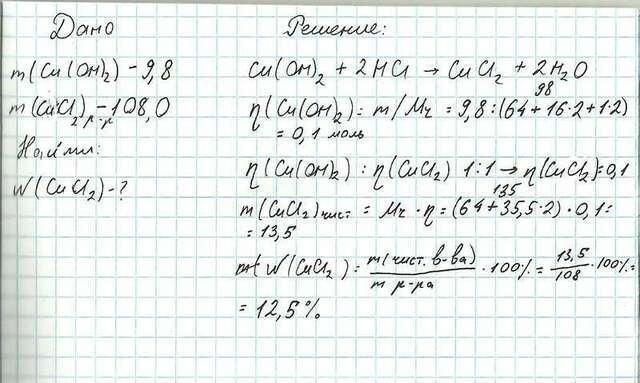 Дано
m(Cu(OH)₂) - 9,8
m(CuCl₂)р-р - 108,0
Найти:
W(CuCl₂) - ?
Решение:
Cu(OH)₂ + 2HCl → CuCl₂ + 2H₂O
98
η(Cu(OH)₂) = m/Mr = 9,8 : (64+16·2+1·2)
= 0,1 моль
η(Cu(OH)₂) : η(CuCl₂) 1:1 → η(CuCl₂)=0,1
135
m(CuCl₂)чист = Mr · η = (64+35,5·2) · 0,1 =
= 13,5
W(CuCl₂) = m(чист. в-ва) / m р-ра · 100% = 13,5/108 · 100% =
= 12,5%